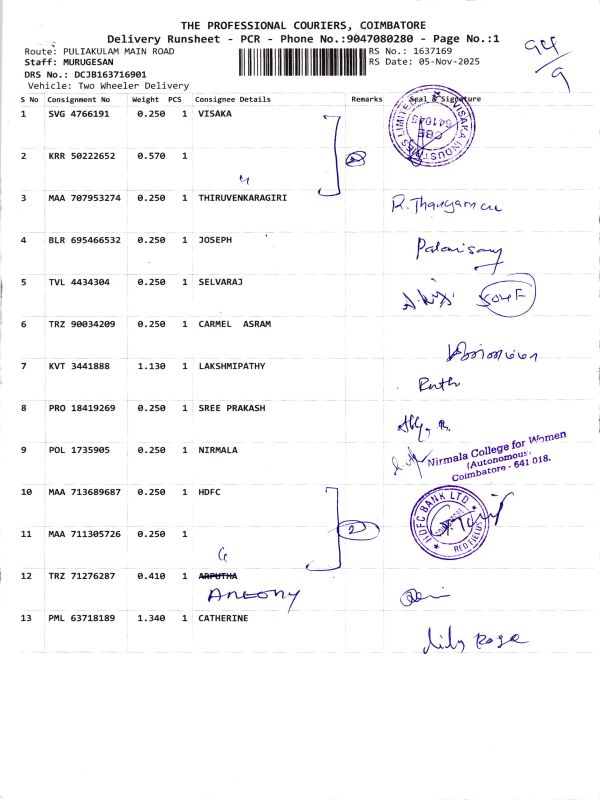 THE PROFESSIONAL COURIERS, COIMBATORE
Delivery Runsheet - PCR - Phone No.:9047080280 - Page No.:1
94/9
Route: PULIAKULAM MAIN ROAD
RS No.: 1637169
Staff: MURUGESAN
RS Date: 05-Nov-2025
DRS No.: DCJB163716901
Vehicle: Two Wheeler Delivery
S No Consignment No Weight PCS Consignee Details Remarks Seal & Signature
1 SVG 4766191 0.250 1 VISAKA
VISAKA INDUSTRIES LIMITED CBE 641045
2 KRR 50222652 0.570 1
3 MAA 707953274 0.250 1 THIRUVENKARAGIRI
4 BLR 695466532 0.250 1 JOSEPH Palanisamy
5 TVL 4434304 0.250 1 SELVARAJ
6 TRZ 90034209 0.250 1 CARMEL ASRAM
7 KVT 3441888 1.130 1 LAKSHMIPATHY Ruth
8 PRO 18419269 0.250 1 SREE PRAKASH
9 POL 1735905 0.250 1 NIRMALA
Nirmala College for Women
(Autonomous)
Coimbatore - 641 018.
10 MAA 713689687 0.250 1 HDFC
HDFC BANK LTD RED FIELDS
11 MAA 711305726 0.250 1 2
12 TRZ 71276287 0.410 1 ARPUTHA
ANTONY
13 PML 63718189 1.340 1 CATHERINE
Lily Rose